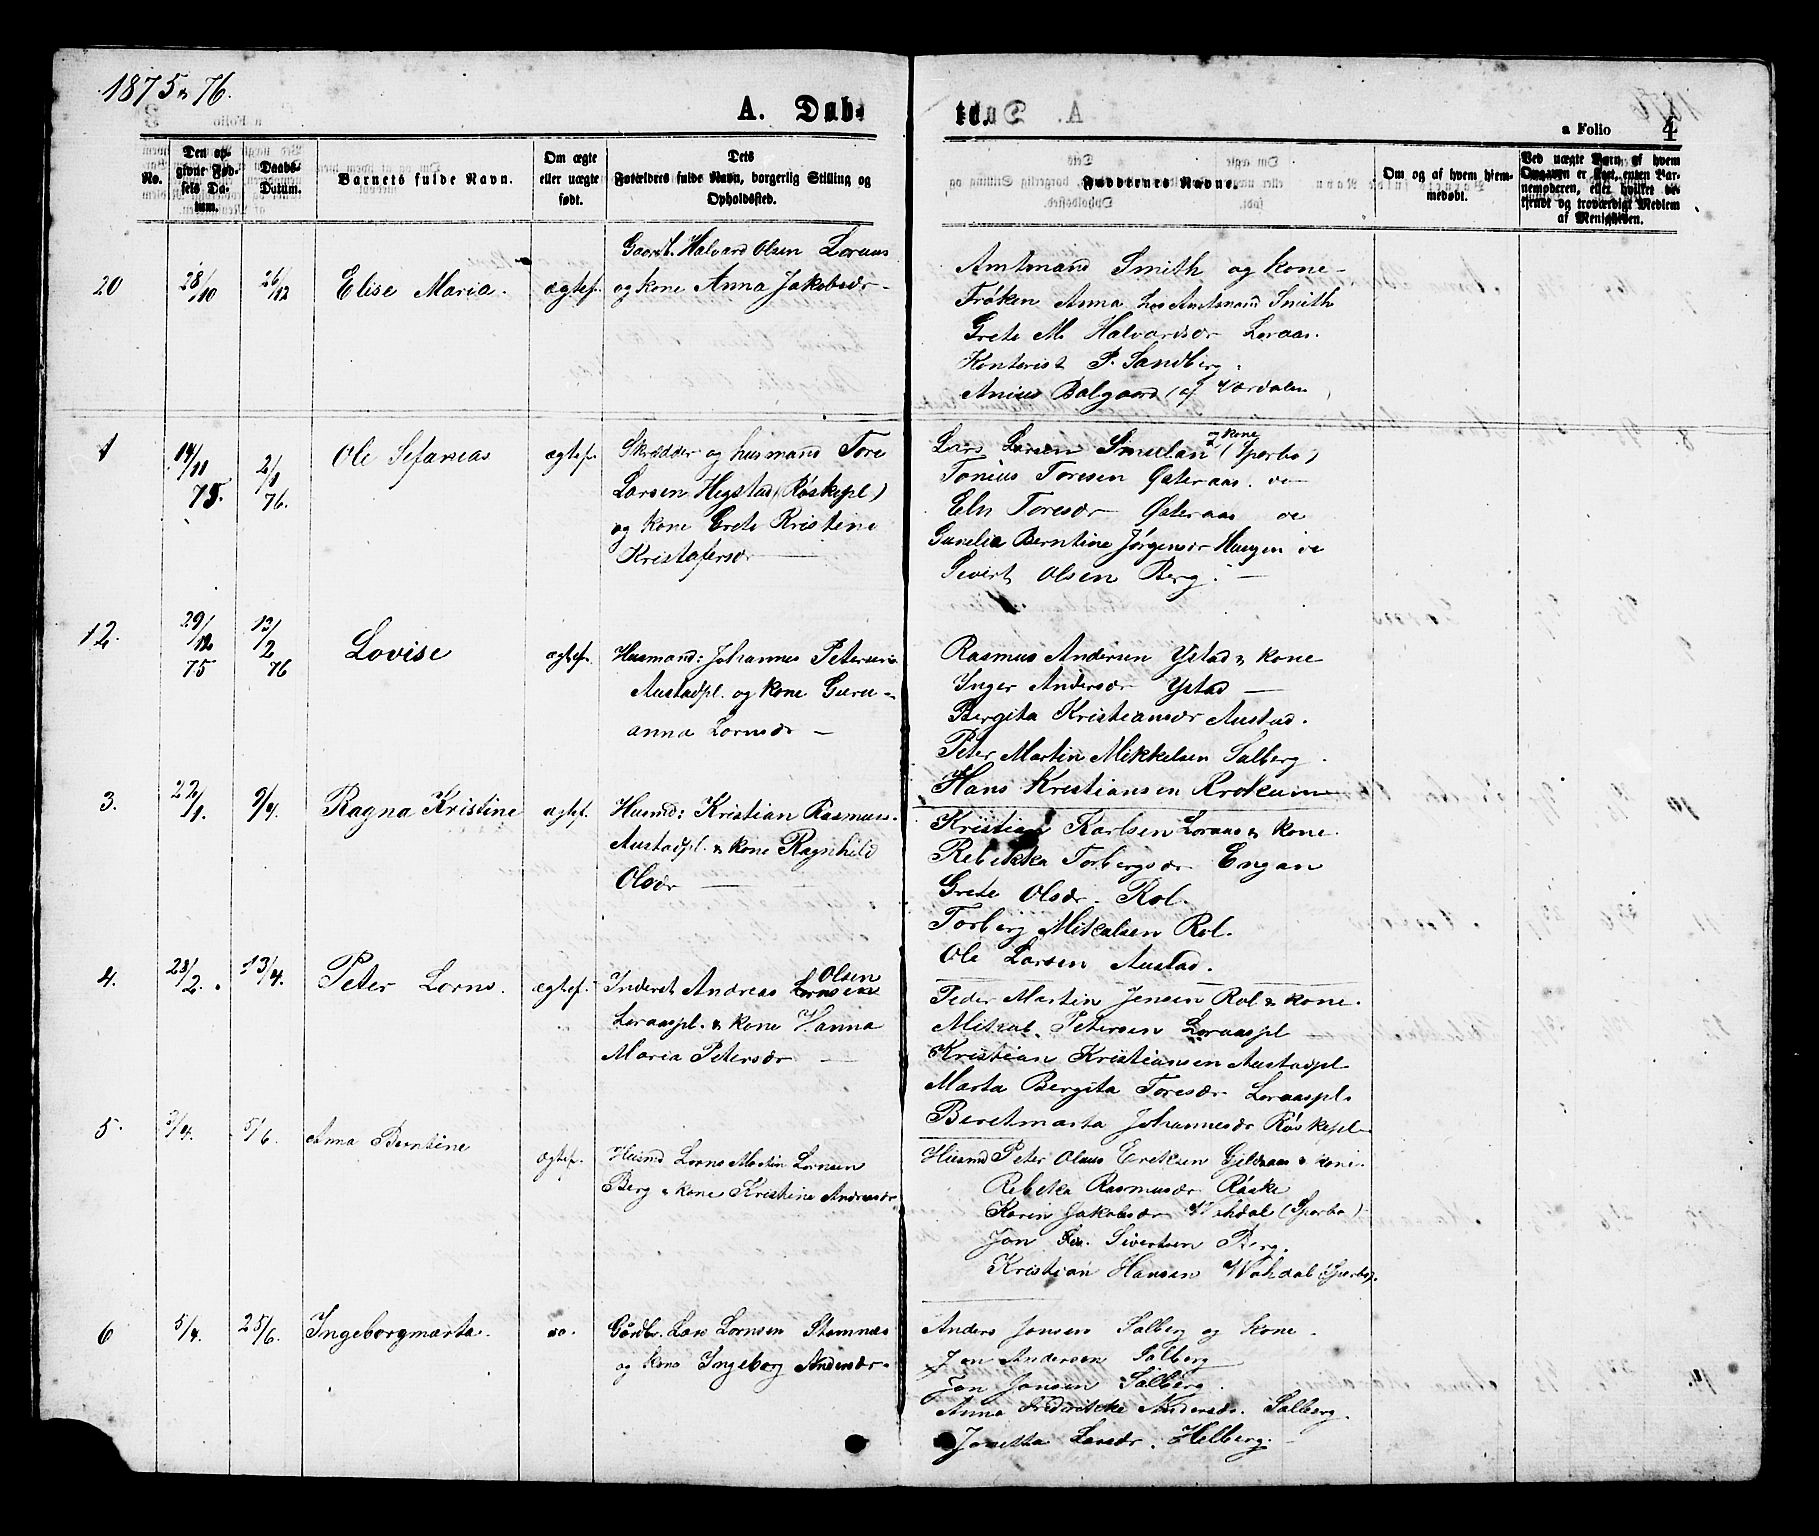 1875 & 76.
A. Døbte
a Folio 4
No.
Den opgivne Fødsels Datum.
Daabs-Datum.
Barnets fulde Navn.
Om ægte eller uægte født.
Dets Forældres fulde Navn, borgerlig Stilling og Opholdssted.
Faddernes Navne.
Om og af hvem hjemmedøbt.
Ved uægte Børn, af hvem Opgaven er sket, enten Barnemoderen, eller hvilket bekjendt og troværdigt Medlem af Menigheden.
20
28/10
26/12
Elise Maria.
ægtef.
Gaardb. Halvard Olsen Loraas
og kone Anna Jakobsdr
Amtmand Smith og kone
Frøken Anna hos Amtmand Smith
Grete M. Halvardsdr Loraas.
Kontorist P. Sandberg.
Anius Balgaard (af Værdalen)
1
14/11 75.
2/1 76.
Ole Sefanias
ægtef.
Skrædder og husmand Tore
Larsen Hegstad (Røskepl)
og kone Grete Kristine
Kristofersdr
Lars Larsen Smulan & kone (Sparbo)
Tonius Toresen Østeraas
Eln Toresdr Østeraas
Gunelie Berntine Jørgensdr Haugen
Sivert Olsen Berg.
12.
29/12 75
13/2 76
Lovise
ægtef.
Husmand: Johannes Petersen
Austadpl. og kone Guru-
anna Lornsdr
Rasmus Andersen Ystad & kone
Inger Andersdr Ystad
Bergita Kristiansdr Austad.
Peter Martin Mikkelsen Salberg.
Hans Kristiansen Krokum
3.
22/1.
9/4.
Ragna Kristine
ægtef.
Husmd: Kristian Rasmus.
Austadpl. & kone Ragnhild
Olsdr
Kristian Karlsen Loraas & kone.
Rebekka Torbergsdr Engan
Grete Olsdr. Rol.
Torberg Mikalsen Rol.
Ole Larsen Austad.
4.
28/2.
13/4.
Peter Lorns.
ægtef.
Inderst Andreas Olsen
Loraaspl. & kone Hanna
Maria Petersdr
Peder Martin Jensen Rol & kone.
Mikal Petersen Loraaspl
Kristian Kristiansen Austadpl
Marta Bergita Toresdr Loraaspl.
Beretmarta Johannesdr Røskepl
5.
3/4.
5/6.
Anna Berntine
ægtef.
Husmd Lorns Martin Lornsen
Berg & kone Kristine Andreasdr
Husmd Peter Olaus Eriksen Gjeldraas & kone.
Rebeka Rasmusdr Røske
Karen Jakobsdr Wehdal (Sparbo)
Jon Sivertsen Berg.
Kristian Hansen Wahdal (Sparbo).
6
5/4.
25/6.
Ingeborgmarta.
do.
Gårdbr. Lars Lornsen Stamnes
og kone Ingeborg Andersdr.
Anders Jonsen Salberg og kone.
Jon Andersen Salberg
Jon Jonsen Salberg.
Anna Frederikke Andersdr. Salberg.
Jonetta Larsdr. Helberg.